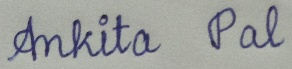 Ankita Pal